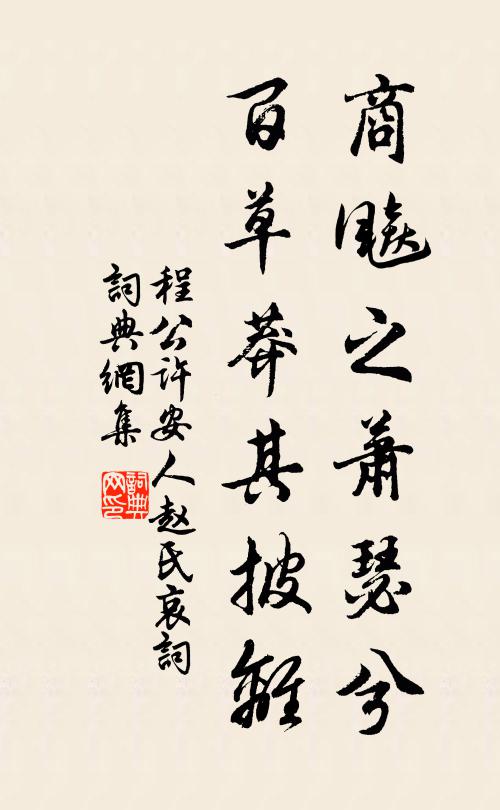 商飚之蕭瑟兮
百草莽其披離
程公許安人赵氏哀詞
詞典網集
詞典网印